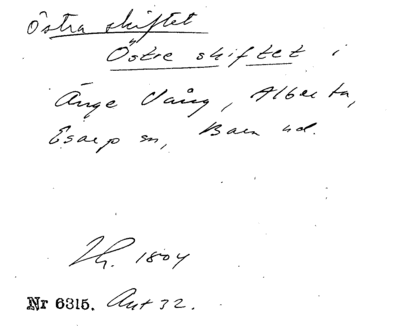 Östra skiftet
Östre skiftet i
Änge Vång, Alberta,
Esarp sn, Bara hd.
1804
Nr 6315. Avt 32.